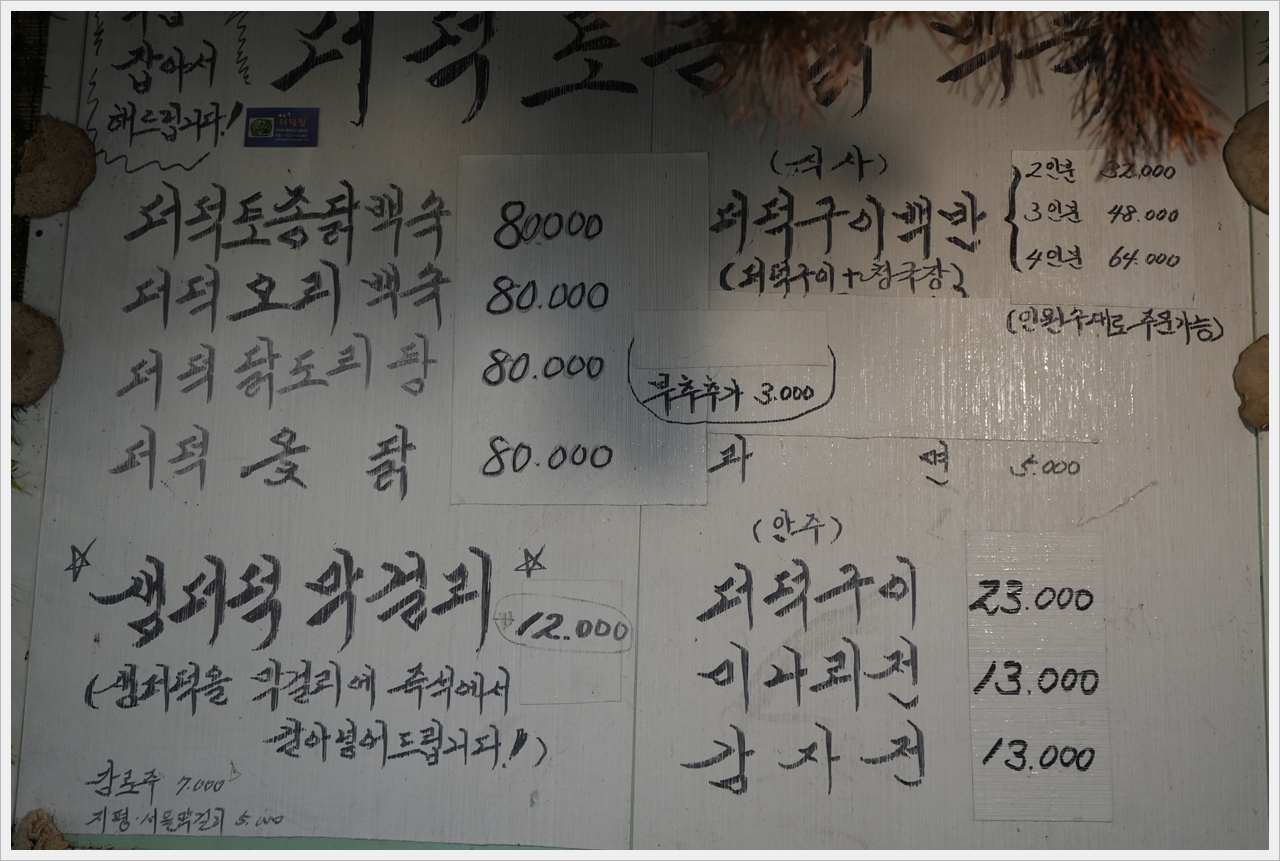 잡아서
해드립니다!
더덕 토종닭 백숙
더덕토종닭백숙 80000
더덕 오리 백숙 80.000
더덕 닭도리탕 80.000
더덕 옻닭 80.000
부추추가 3.000
(식사)
더덕구이백반
(더덕구이+청국장)
2인분 32.000
3인분 48.000
4인분 64.000
(인원수대로 주문가능)
라면 5.000
☆ 생더덕 막걸리 ☆ 12.000
(생더덕을 막걸리에 즉석에서
갈아넣어드립니다!)
감로주 7.000
지평·서울막걸리 5.000
(안주)
더덕구이 23.000
미나리전 13.000
감자전 13.000